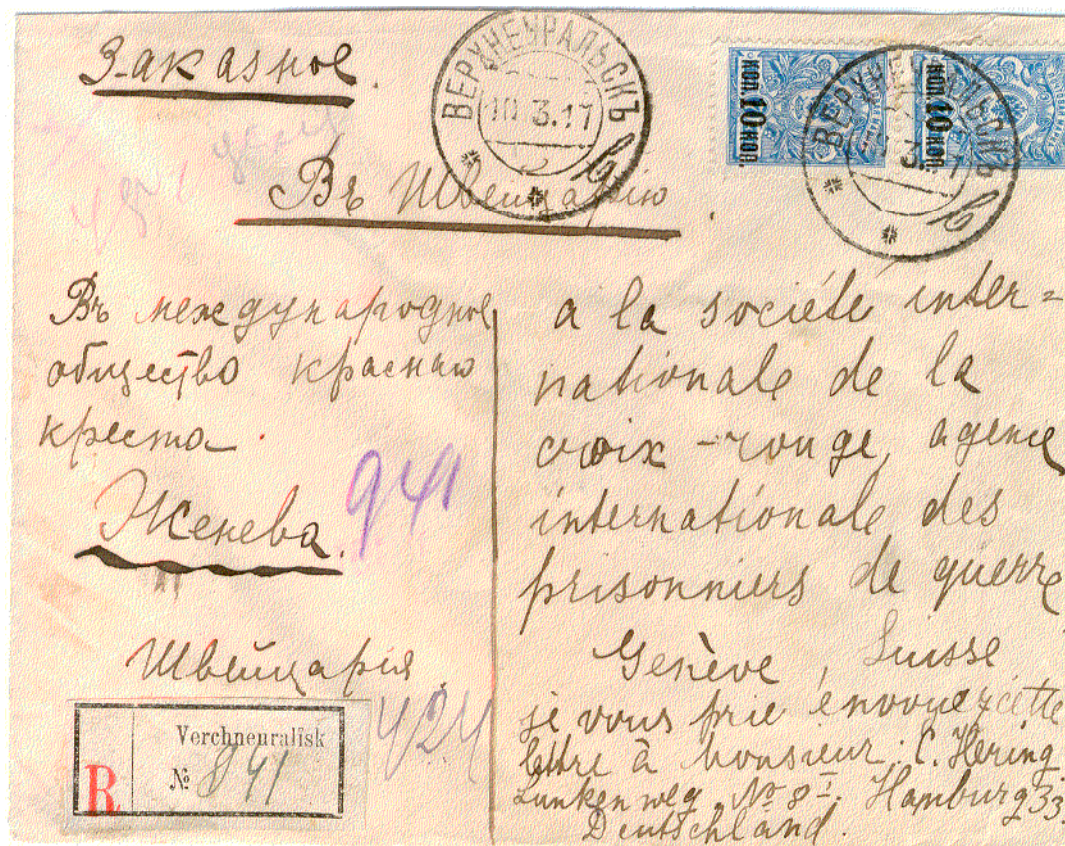 Заказное.
ВЕРХНЕУРАЛЬСКЪ
10.3.17
коп. 10 коп.
коп. 10 коп.
ВЕРХНЕУРАЛЬСКЪ
Въ Швейцарію.
Въ международное
общество краснаго
креста.
Женева.
941
Швейцарія.
424
Verchneuralisk
R № 841
a la societé inter=
nationale de la
croix-rouge, agence
internationale des
prisonniers de guerre
Genève, Suisse
je vous prie envoyez cette
lettre à Monsieur C. Hering
Lunkenweg № 8 I. Hamburg 33.
Deutschland.